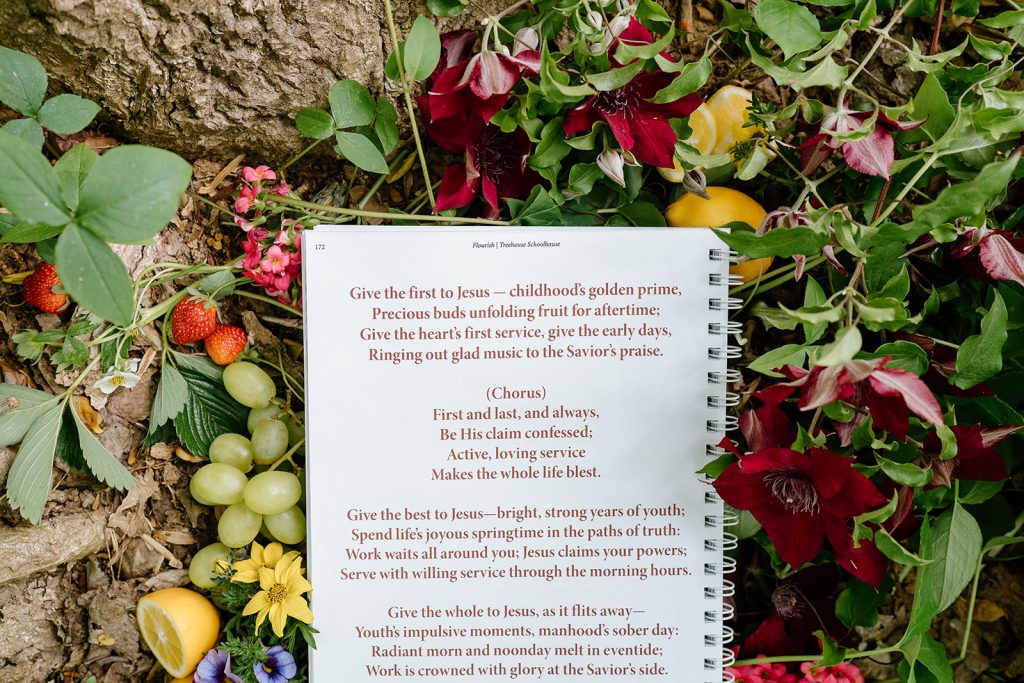 172
Flourish | Treehouse Schoolhouse
Give the first to Jesus — childhood's golden prime,
Precious buds unfolding fruit for aftertime;
Give the heart's first service, give the early days,
Ringing out glad music to the Savior's praise.
(Chorus)
First and last, and always,
Be His claim confessed;
Active, loving service
Makes the whole life blest.
Give the best to Jesus—bright, strong years of youth;
Spend life's joyous springtime in the paths of truth:
Work waits all around you; Jesus claims your powers;
Serve with willing service through the morning hours.
Give the whole to Jesus, as it flits away—
Youth's impulsive moments, manhood's sober day:
Radiant morn and noonday melt in eventide;
Work is crowned with glory at the Savior's side.